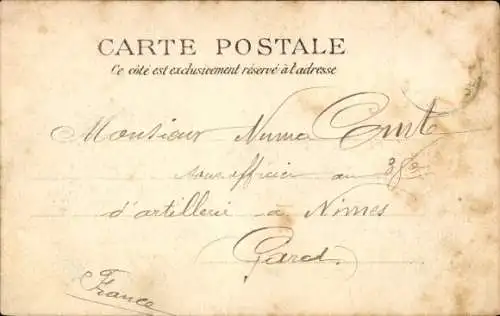 CARTE POSTALE
Ce côté est exclusivement réservé à l'adresse
Monsieur Numa
sous officier au 38e
d'artillerie à Nimes
Gard.
France